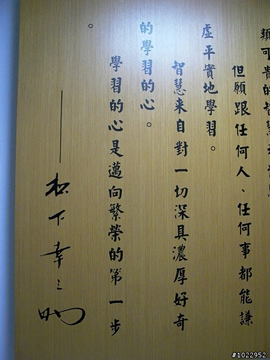 可貴的智慧
但願跟任何人、任何事都能謙
虛平實地學習。
智慧來自對一切深具濃厚好奇
的學習的心。
學習的心是邁向繁榮的第一步
。
——松下幸之助
#1022952